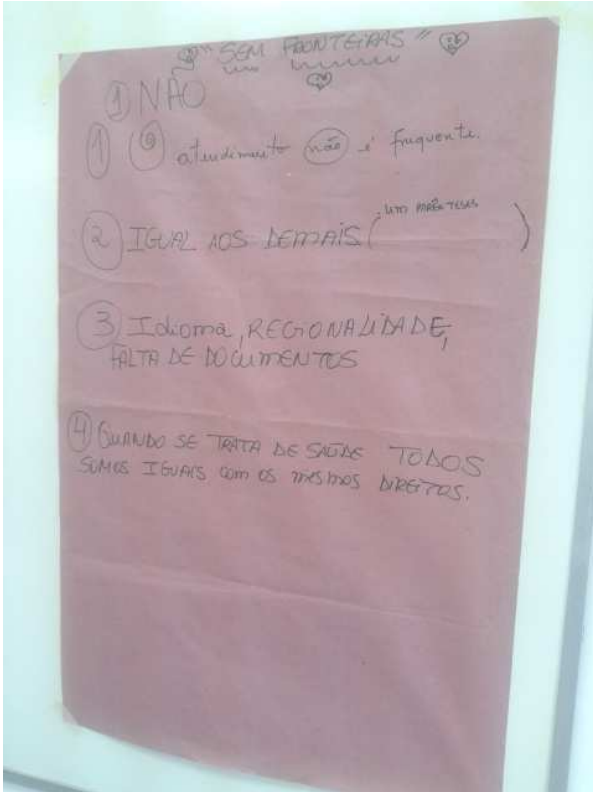 "SEM FRONTEIRAS"
① NÃO
① O atendimento não é frequente.
② IGUAL AOS DEMAIS ( um parênteses )
③ Idioma, REGIONALIDADE,
FALTA DE DOCUMENTOS
④ QUANDO SE TRATA DE SAÚDE TODOS
SOMOS IGUAIS com os mesmos DIREITOS.